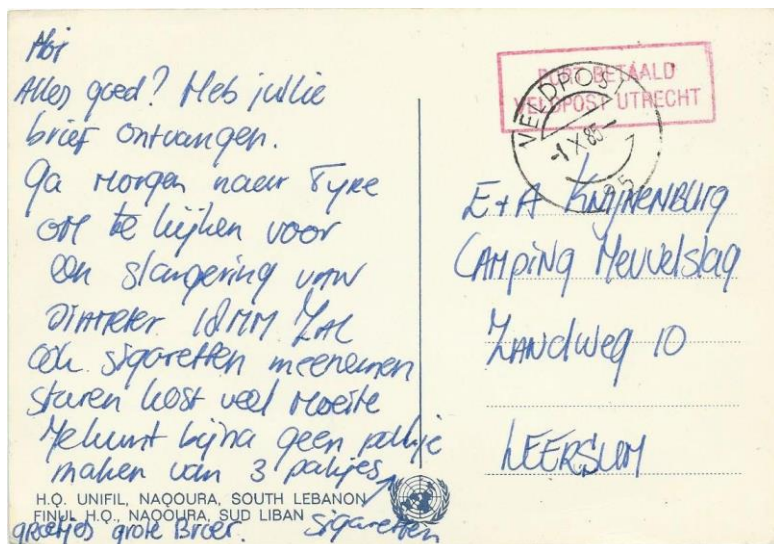 Hoi
Alles goed? Heb jullie
brief ontvangen.
Ga morgen naar Tyre
om te kijken voor
een slangering
Diameter 18MM Zal
ook sigaretten meenemen
sturen kost veel moeite
Je kunt bijna geen pakje
maken van 3 pakjes
sigaretten
groetjes grote Broer.
H.Q. UNIFIL, NAQOURA, SOUTH LEBANON
FINUL H.Q., NAQOURA, SUD LIBAN
PORT BETAALD
VELDPOST UTRECHT
VELDPOST
-1 X 85
E+A KNIJNENBURG
CAMPING Heuvelslag
Zandweg 10
LEERSUM